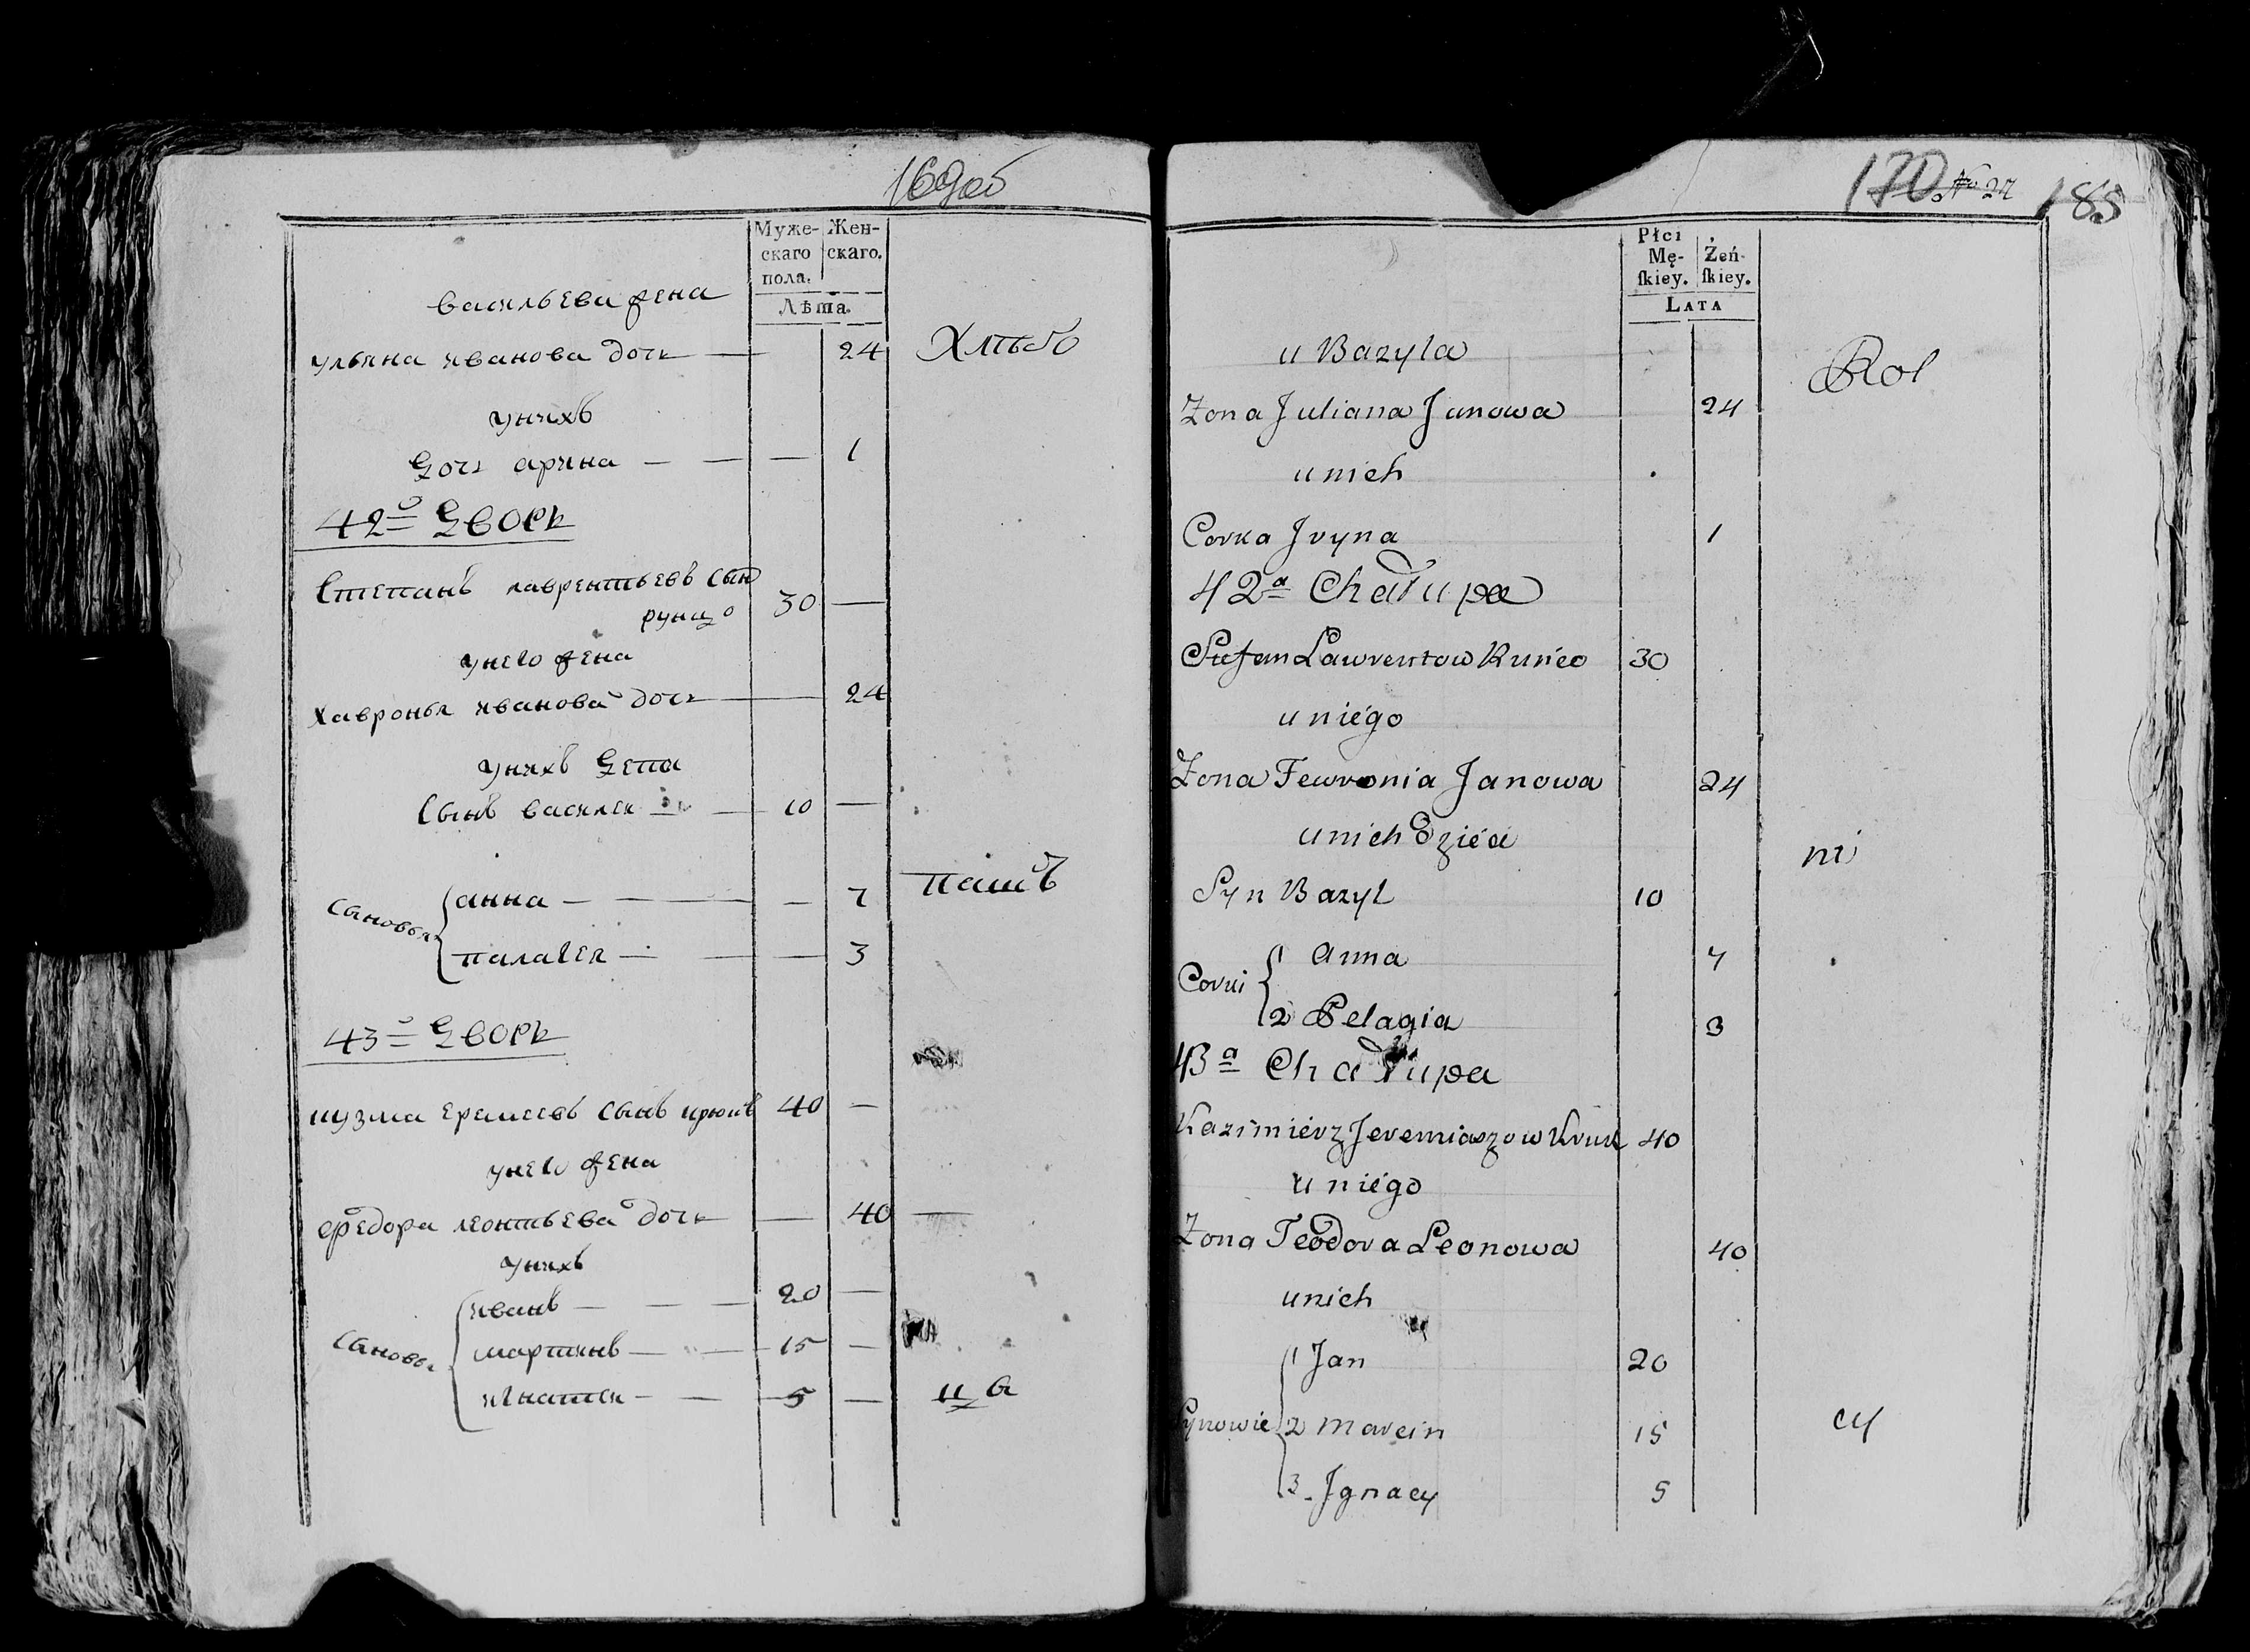 169об
Муже-
скаго
пола.
Жен-
скаго.
Лѣта.
васильева жена
ульяна иванова дочь — 24
Хлѣбо
унихъ
дочь арина — — — 1
42й дворъ
Степанъ лаврентьевъ сын
рунцо 30 —
унево жена
хавронья иванова дочь — 24
унихъ дети
сынъ василеи — — 10 —
пашъ
сыновья
анна — — — — 7
палагея — — — 3
43й дворъ
кузма еремеевъ сынъ крюкъ 40 —
унево жена
федора леонтьева дочь — 40 —
унихъ
сыновья
иванъ — — — 20 —
мартинъ — — 15 —
игнатеи — — 5 —
цъ
170 No 27 185
Płci
Mę-
ſkiey.
Żeń-
ſkiey.
LATA
u Bazyla
Rol
Żona Juliana Janowa 24
u nich
Corka Jryna 1
42a Chałupa
Stefan Lawrentow Runco 30
u niégo
Żona Fewronia Janowa 24
u nich dziéci
ni
Syn Bazyl 10
Corki
1 Anna 7
2 Pelagia 3
43a Chałupa
Kazimiérz Jeremiaszow Kruk 40
u niégo
Żona Teodora Leonowa 40
u nich
Synowie
1 Jan 20
2 Marcin 15
3. Jgnacy 5
cy